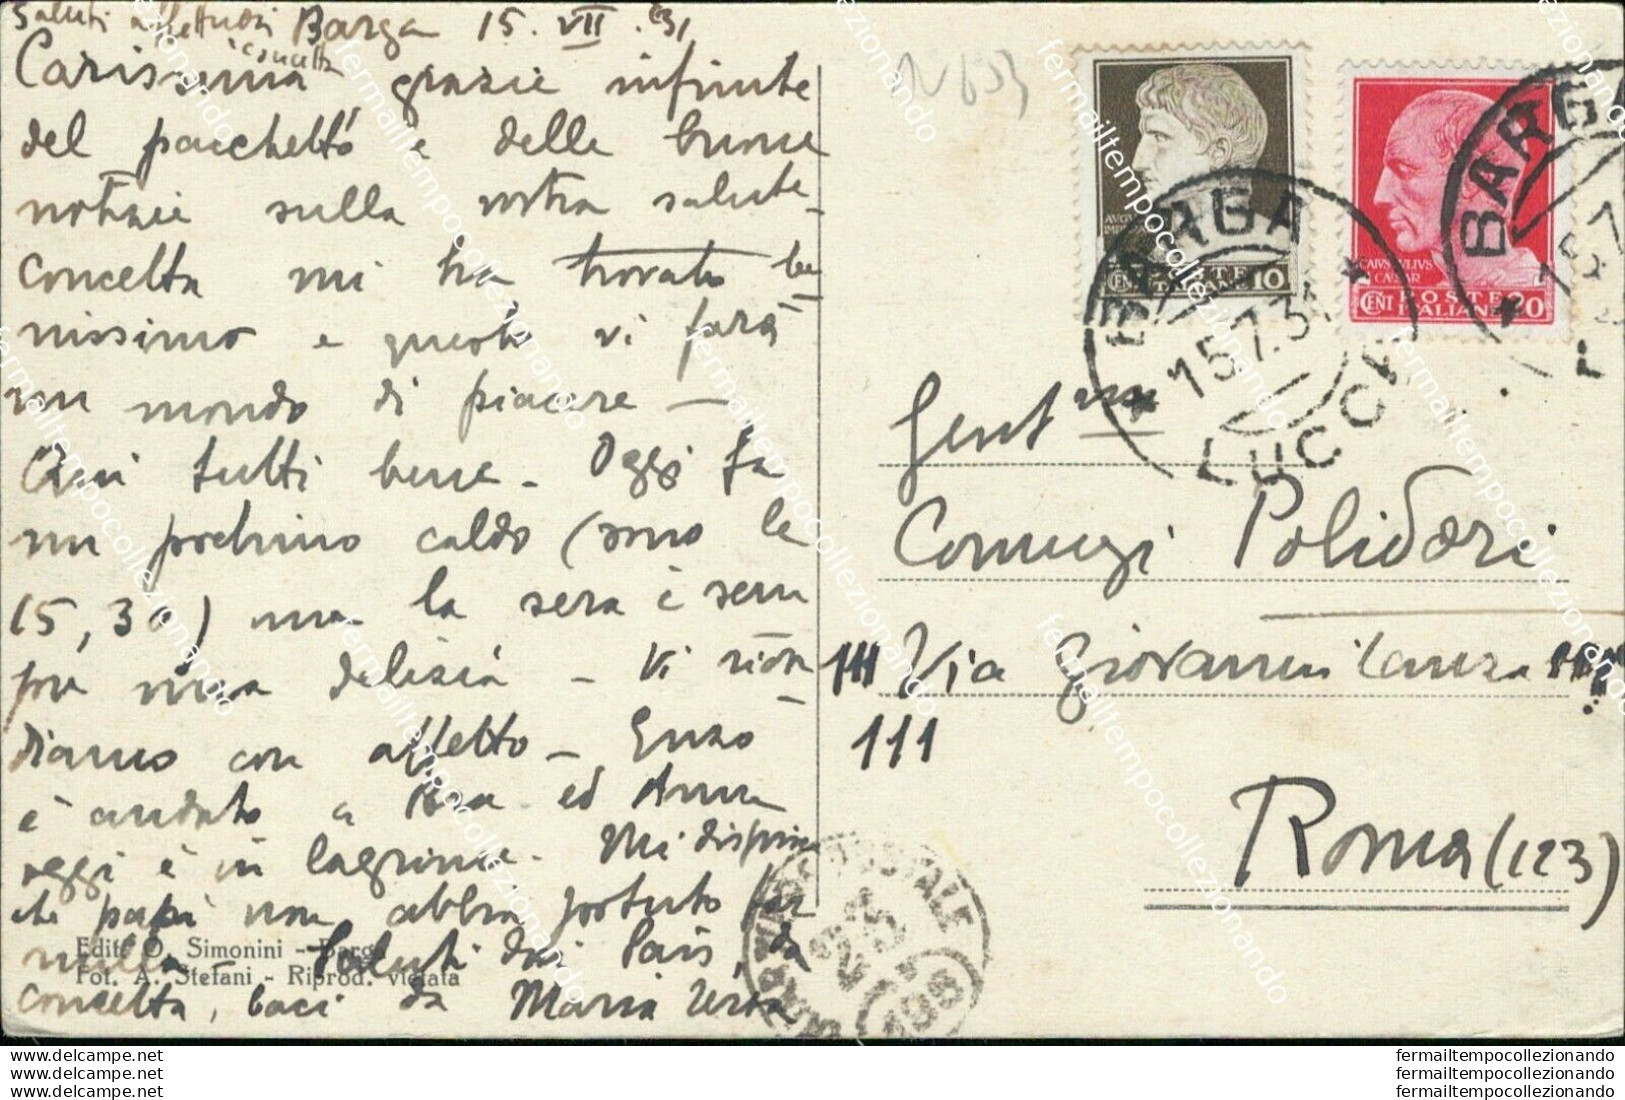 Saluti affettuosi Barga 15. VII. 31
Concetta
Carissima grazie infinite
del pacchetto e delle buone
notizie sulla vostra salute.
Concetta mi ha trovato be
nissimo e questo vi farà
un mondo di piacere —
Qui tutti bene. Oggi fa
un pochino caldo (sono le
15,30) ma la sera è sem
pre una delizia — Vi ricor
diamo con affetto — Enzo
è andato a Pisa ed Anna
oggi è in lagrime. Mi dispiace
che papà non abbia potuto far
nulla — Saluti dai Pais, da
Concetta, baci da Maria
Ediz. O. Simonini - Barga
Fot. A. Stefani - Riprod. vietata
N 653
AUGU
CENT POSTE ITALIANE 10
CAIUS IULIUS
CAESAR
CENT POSTE ITALIANE 20
BARGA
15.7.31
LUCCA
BARGA
15.7
Gent mi
Coniugi Polidori
111 Via Giovanni Lanza
111
Roma (123)
fermailtempocollezionando
www.delcampe.net
www.delcampe.net
www.delcampe.net
fermailtempocollezionando
fermailtempocollezionando
fermailtempocollezionando